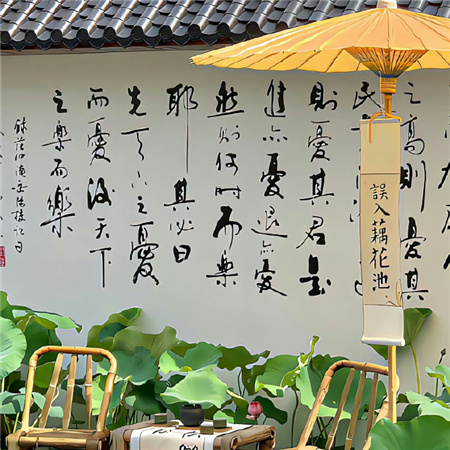 之高則憂其
民
則憂其君是
進亦憂退亦憂
然則何時而樂
耶其必曰
先天下之憂
而憂後天下
之樂而樂
誤入藕花池